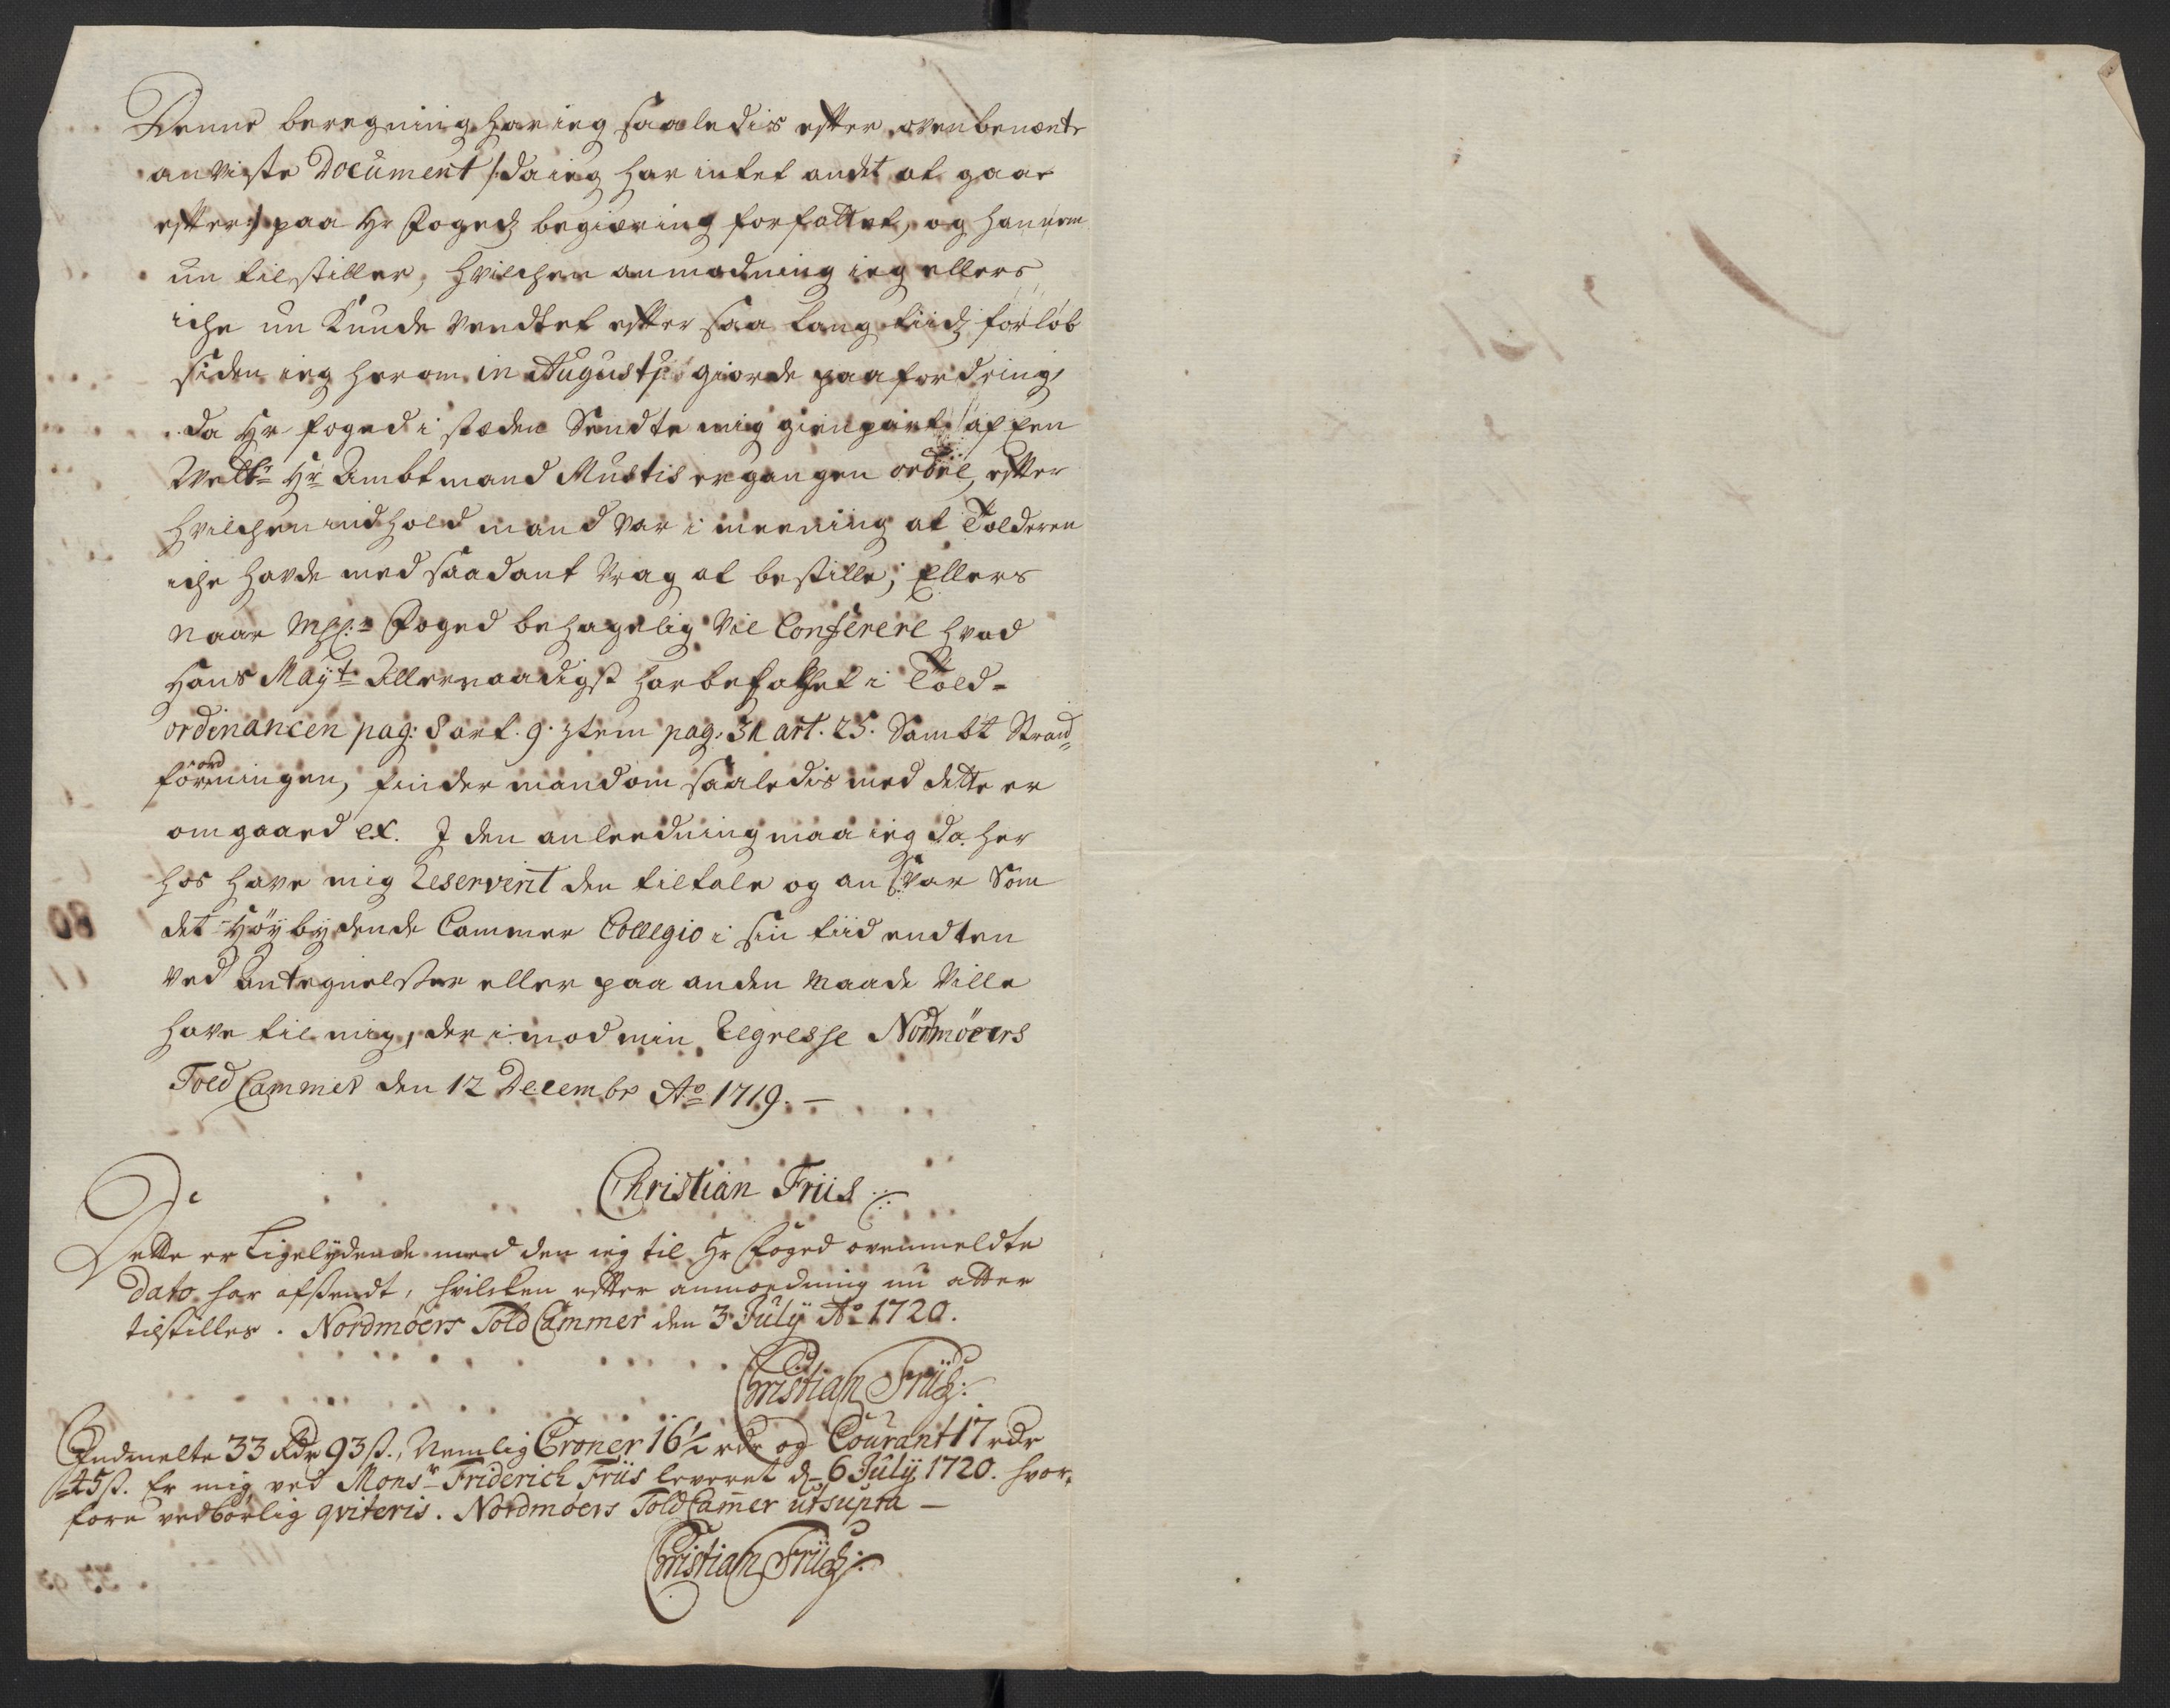 Denne beregning har ieg saaledis efter ovenbenænte
anviste Document /: da ieg har intet andt at gaae
efter :/ paa Hr Fogedz begiæring forfattet, og hannem
nu tilstiller, hvilchen anmodning ieg ellers
iche nu kunde ventet efter saa lang tiidz forløb
siden ieg herom in Augusty giorde paafordring,
da Hr foged i stæden Sendte mig gienpart af een
Welbr Hr Ambtmand Mustis ergangen ordre, efter
hvilchen indhold mand var i meening at Tolderen
iche havde med saadant vrag at bestille; Ellers
naar Hr Foged behagelig vil Conferere hvad
Hans Mayt Allernaadigst har befahlet i Told-
ordinancen pag: 8 art. 9. Item pag: 31 art. 25. Sambt Strand
forordningen, finder mand om saaledis med dette er
omgaaed ex. I den anleedning maa ieg da her
hos have mig Reservert den tiltale og ansvar Som
det Høybydende Cammer Collegio i sin tiid endten
ved Antegnelser eller paa anden maade ville
have til mig, der imod min Regresse Nordmøers
Told Cammer den 12 Decembr Ao 1719. –
Christian Friis
Dette er Ligelydende med den ieg til Hr Foged ovenmeldte
dato har afsendt, hvilcken efter anmodning nu atter
tilstilles. Nordmøers Told Cammer den 3 July Ao 1720.
Christian Friis
Indmelte 33 Rdr 93 s., Nemlig Croner 16½ rdr og Courant 17 rdr
45 s. Er mig ved Monsr Friderich Friis leveret d 6 July 1720. hvor-
fore vedbørlig qviteris. Nordmøers Told Cammer ut supra –
Christian Friis